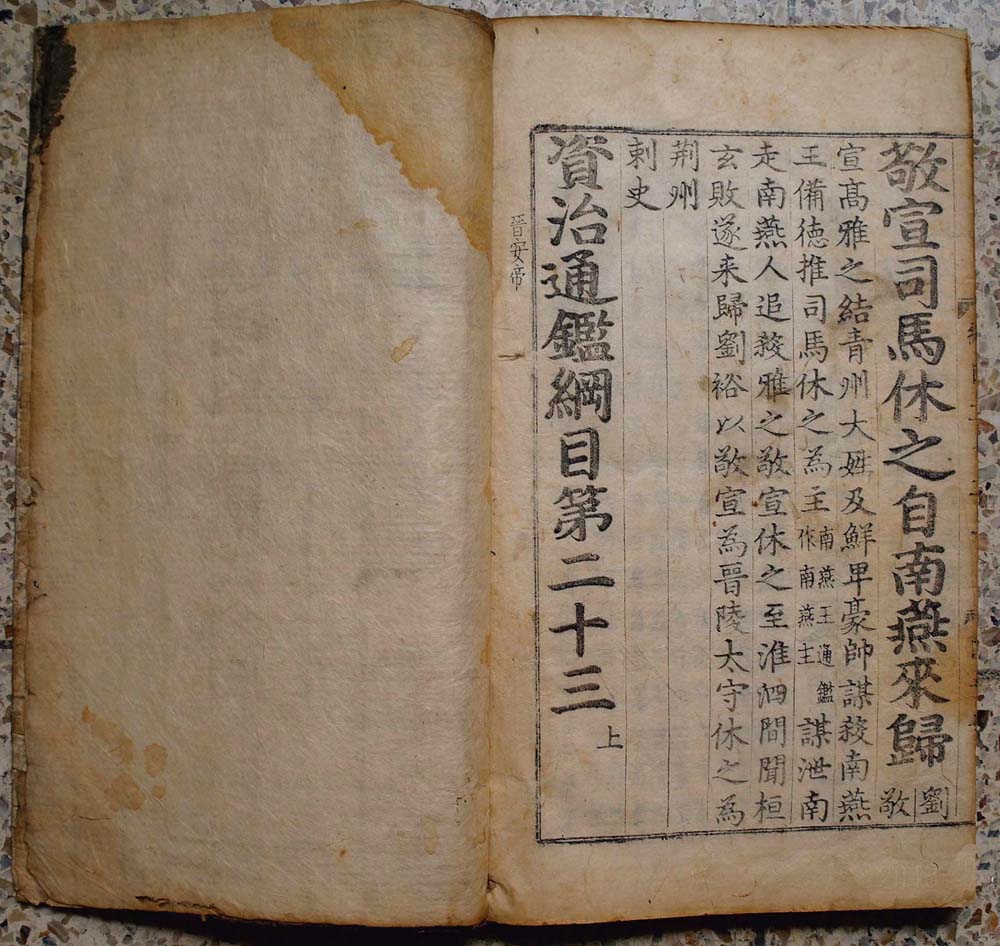 敬宣司馬休之自南燕來歸劉敬
宣髙雅之結青州大姓及鮮卑豪帥謀殺南燕
王備徳推司馬休之為主南燕王通鑑作南燕主謀泄南
走南燕人追殺雅之敬宣休之至淮泗間聞桓
玄敗遂来歸劉裕以敬宣為晉陵太守休之為
荆州
刺史
資治通鑑綱目第二十三上
晉安帝